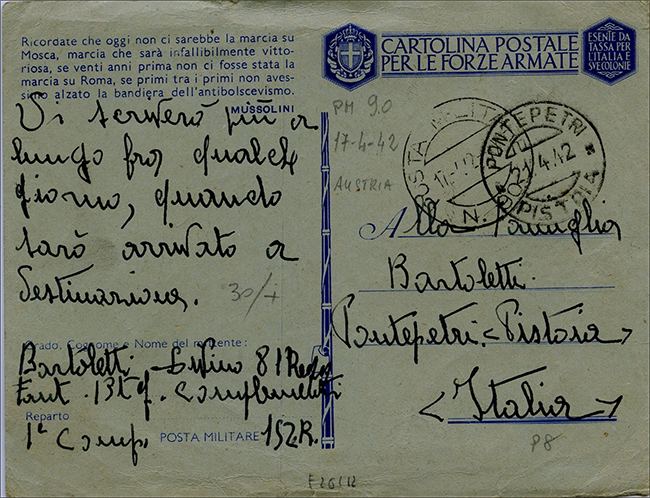 Ricordate che oggi non ci sarebbe la marcia su
Mosca, marcia che sarà infallibilmente vitto-
riosa, se venti anni prima non ci fosse stata la
marcia su Roma, se primi tra i primi non aves-
simo alzato la bandiera dell'antibolscevismo.
MUSSOLINI
Vi scriverò più a
lungo fra qualche
giorno, quando
sarò arrivato a
destinazione.
30/4
Grado, Cognome e Nome del mittente:
Bartoletti 81 Regg
Fant. Btg. Complementi
Reparto
1ª Comp. POSTA MILITARE 152.R.
CARTOLINA POSTALE
PER LE FORZE ARMATE
ESENTE DA
TASSA PER
L'ITALIA E
SVE COLONIE
PM 90
17-4-42
AUSTRIA
POSTA MILITARE
N.
PONTEPETRI
21.4.42
PISTOIA
Alla Famiglia
Bartoletti.
Pontepetri <Pistoia>
<Italia>
P8